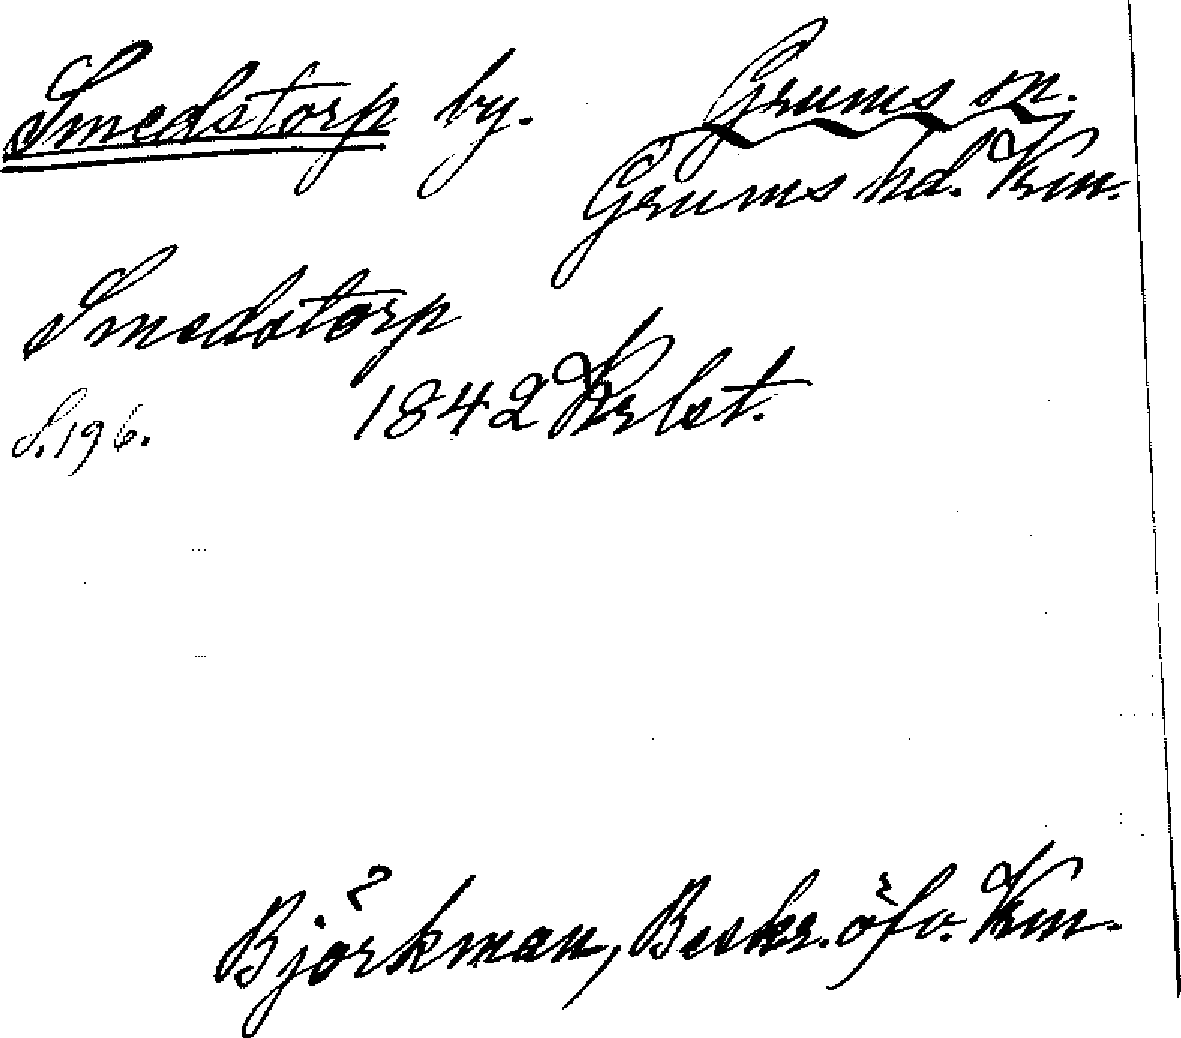 Smedstorp by. Grums sn.
Grums hd. Vrm.
Smedstorp
1842 Krbst.
S. 196.
Björkman, Beskr. öfv. Vrm.